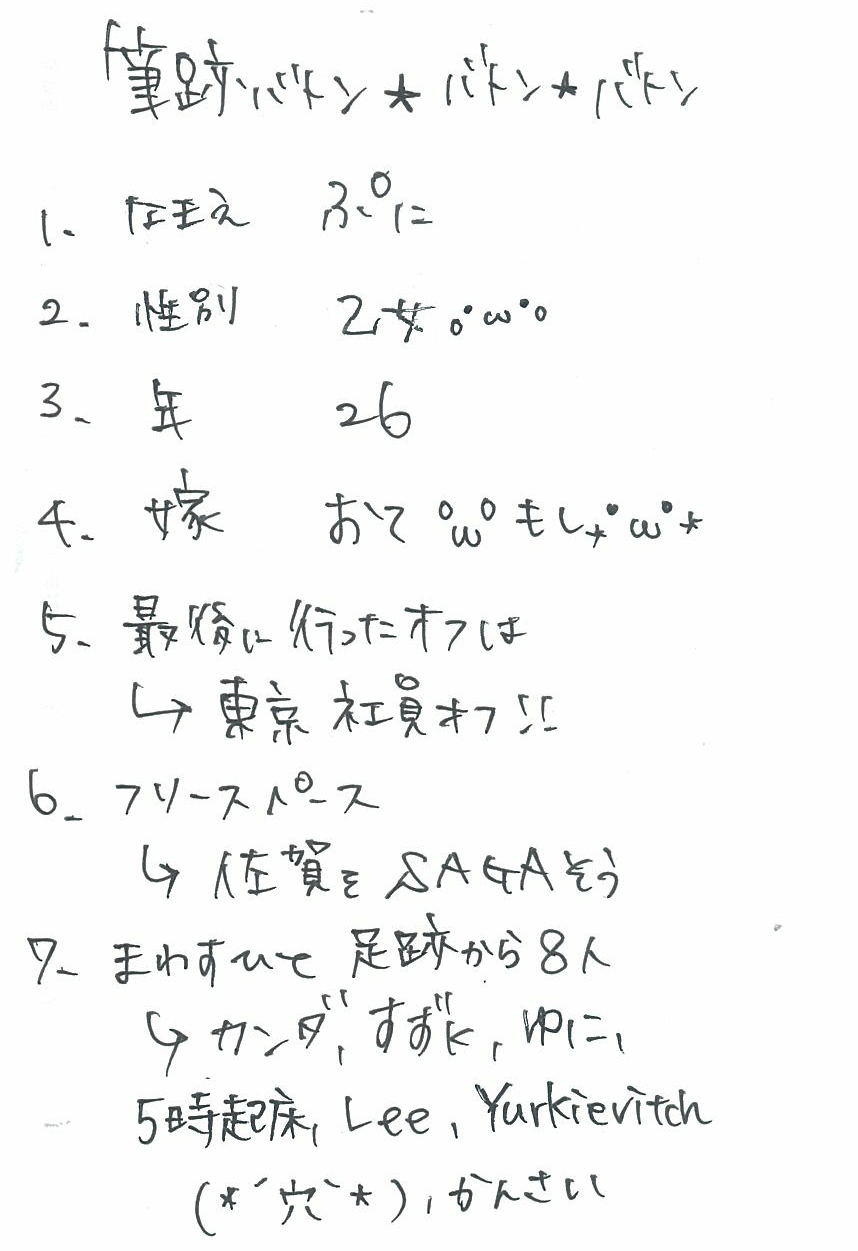 筆跡バトン★バトン★バトン
1. なまえ ぷに
2. 性別 乙女｡･ω･｡
3. 年 26
4. 嫁 おて ゚ω゚ もし★･ω･★
5. 最後に行ったオフは
↳ 東京 社員オフ!!
6. フリースペース
↳ 佐賀をSAGAそう
7. まわすひと 足跡から8人
↳ カンダ, すずK, ゆに,
5時起床, Lee, Yurkievitch
(*´穴`*), かんさい